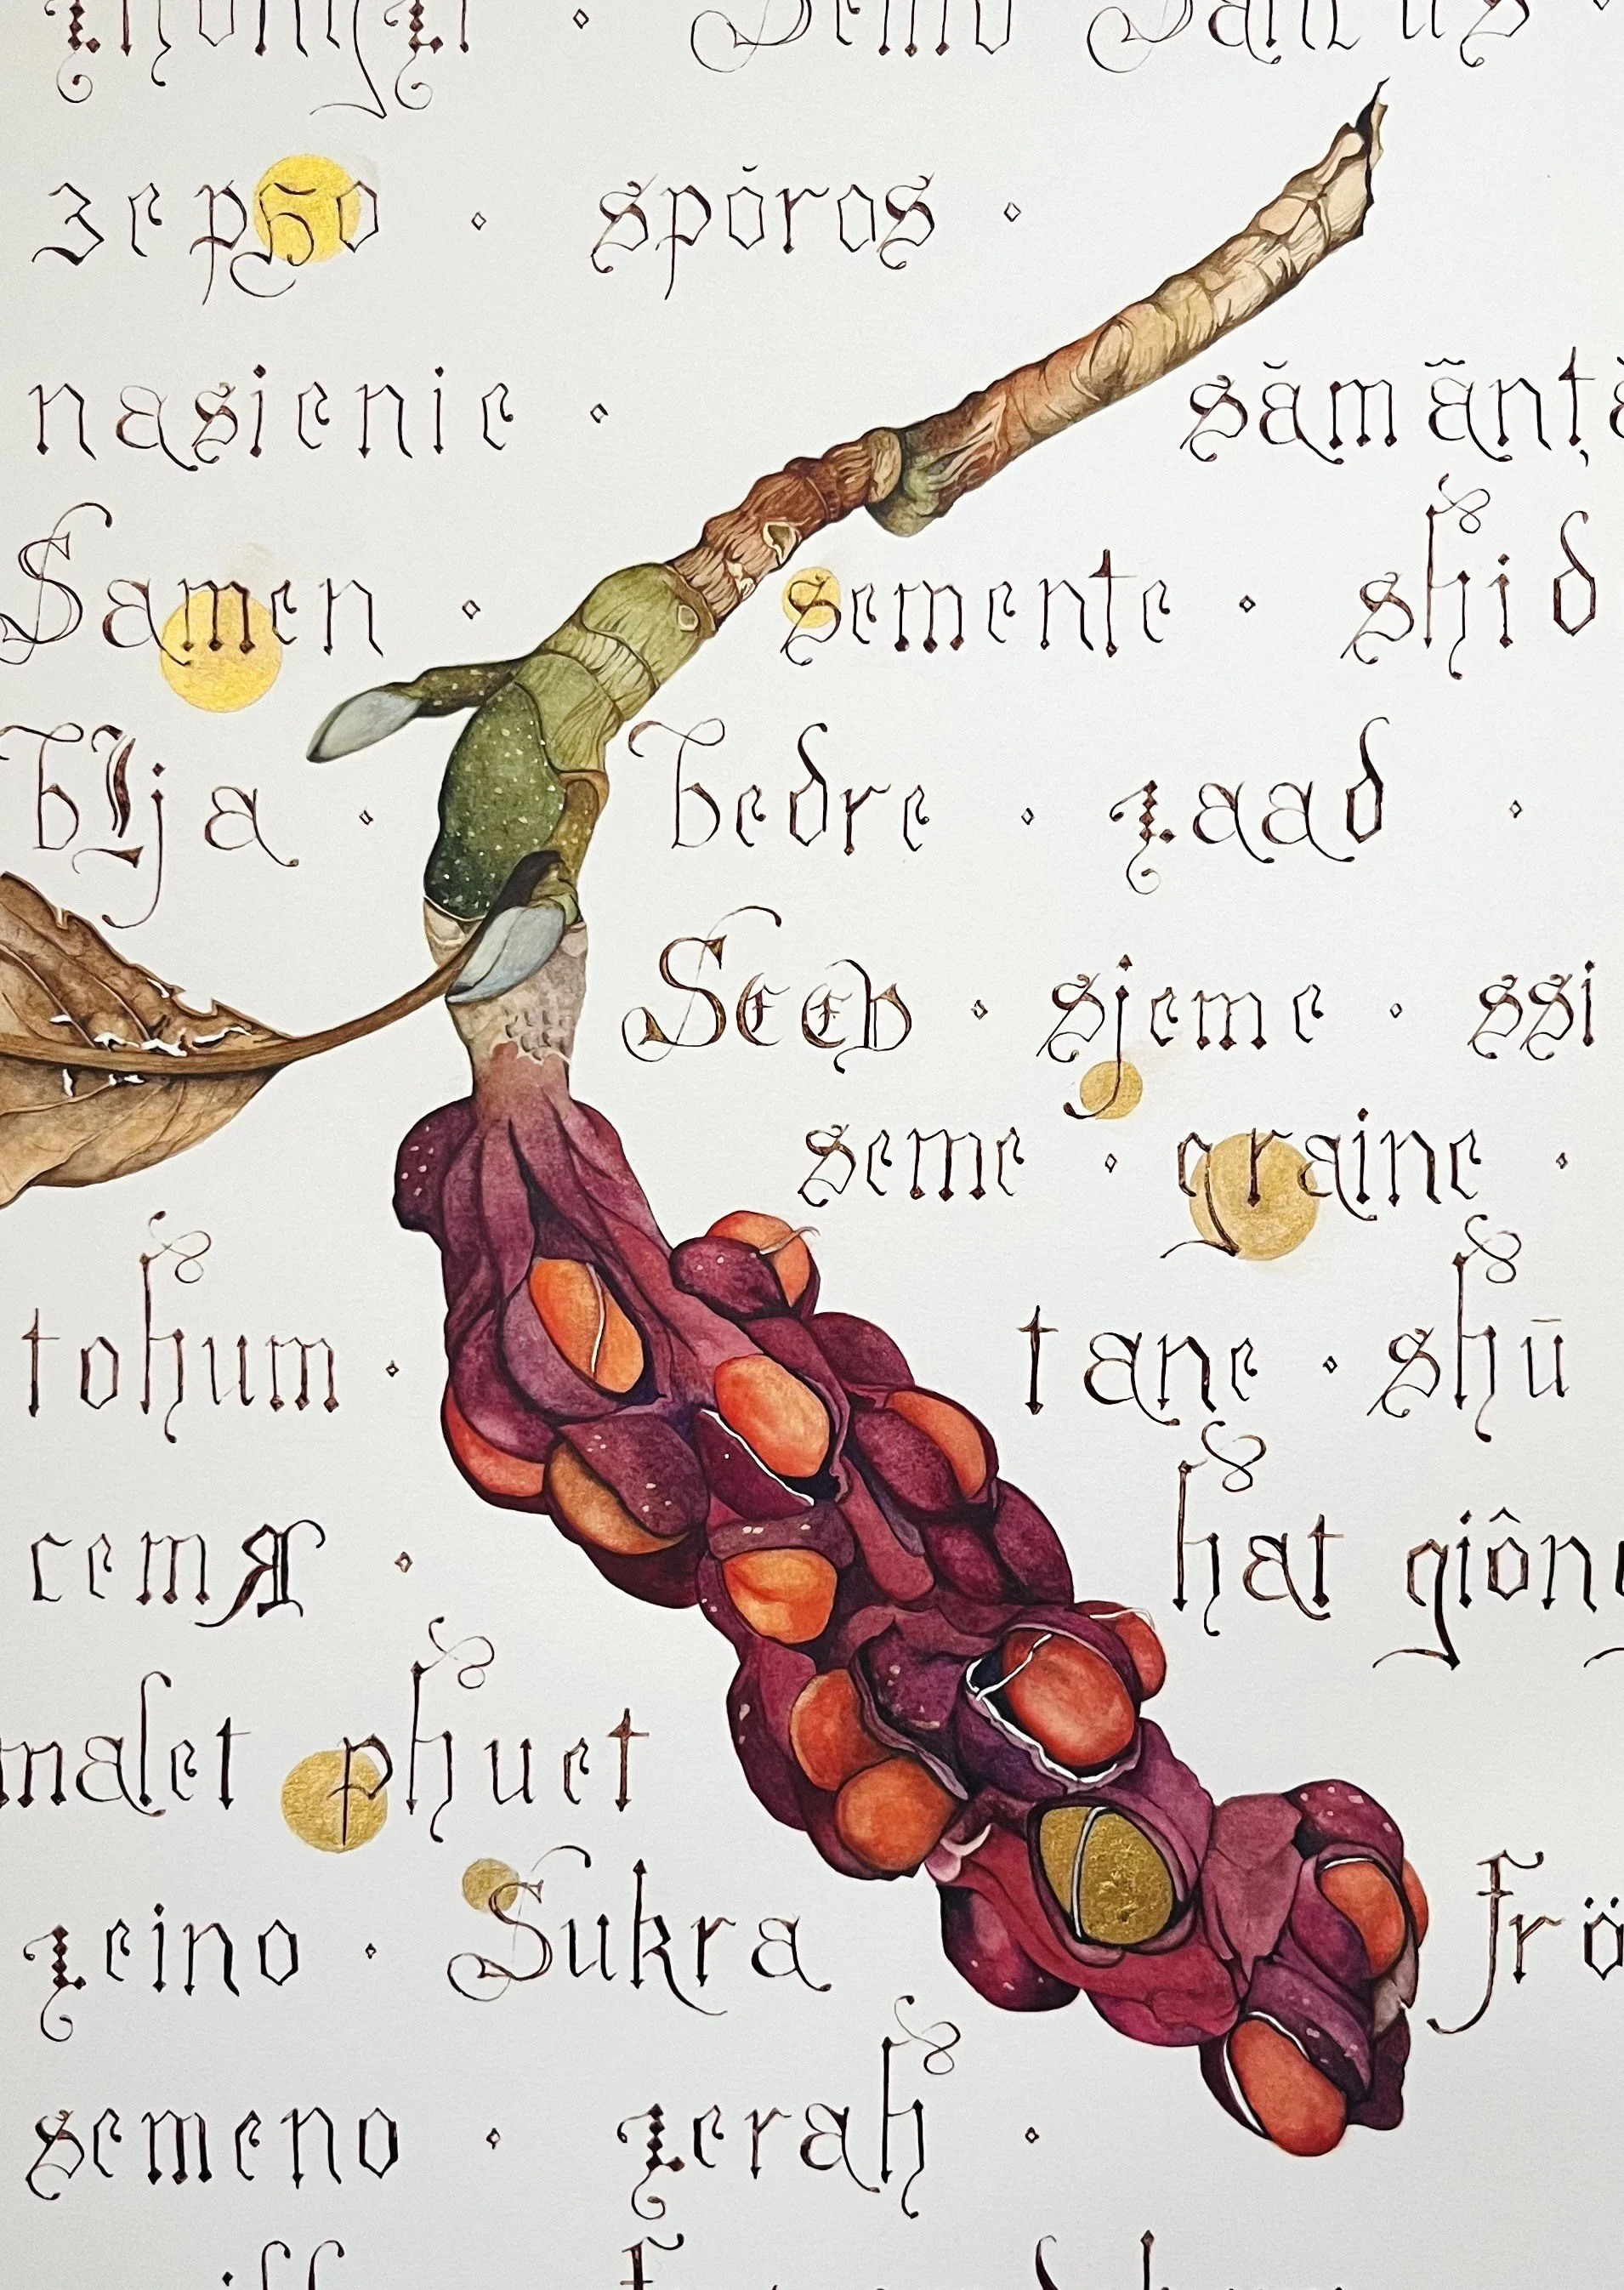 Semo Sancus
зерно ◦ spóros ◦
nasienie ◦ sămănță
Samen ◦ semente ◦ shid
bīja ◦ bedre ◦ zaad ◦
Seed ◦ sjeme ◦ ssi
seme ◦ graine ◦
tohum ◦ tane ◦ shū
семя ◦ hạt giống
malet phuet
zeino ◦ Sukra frö
semeno ◦ zerah ◦